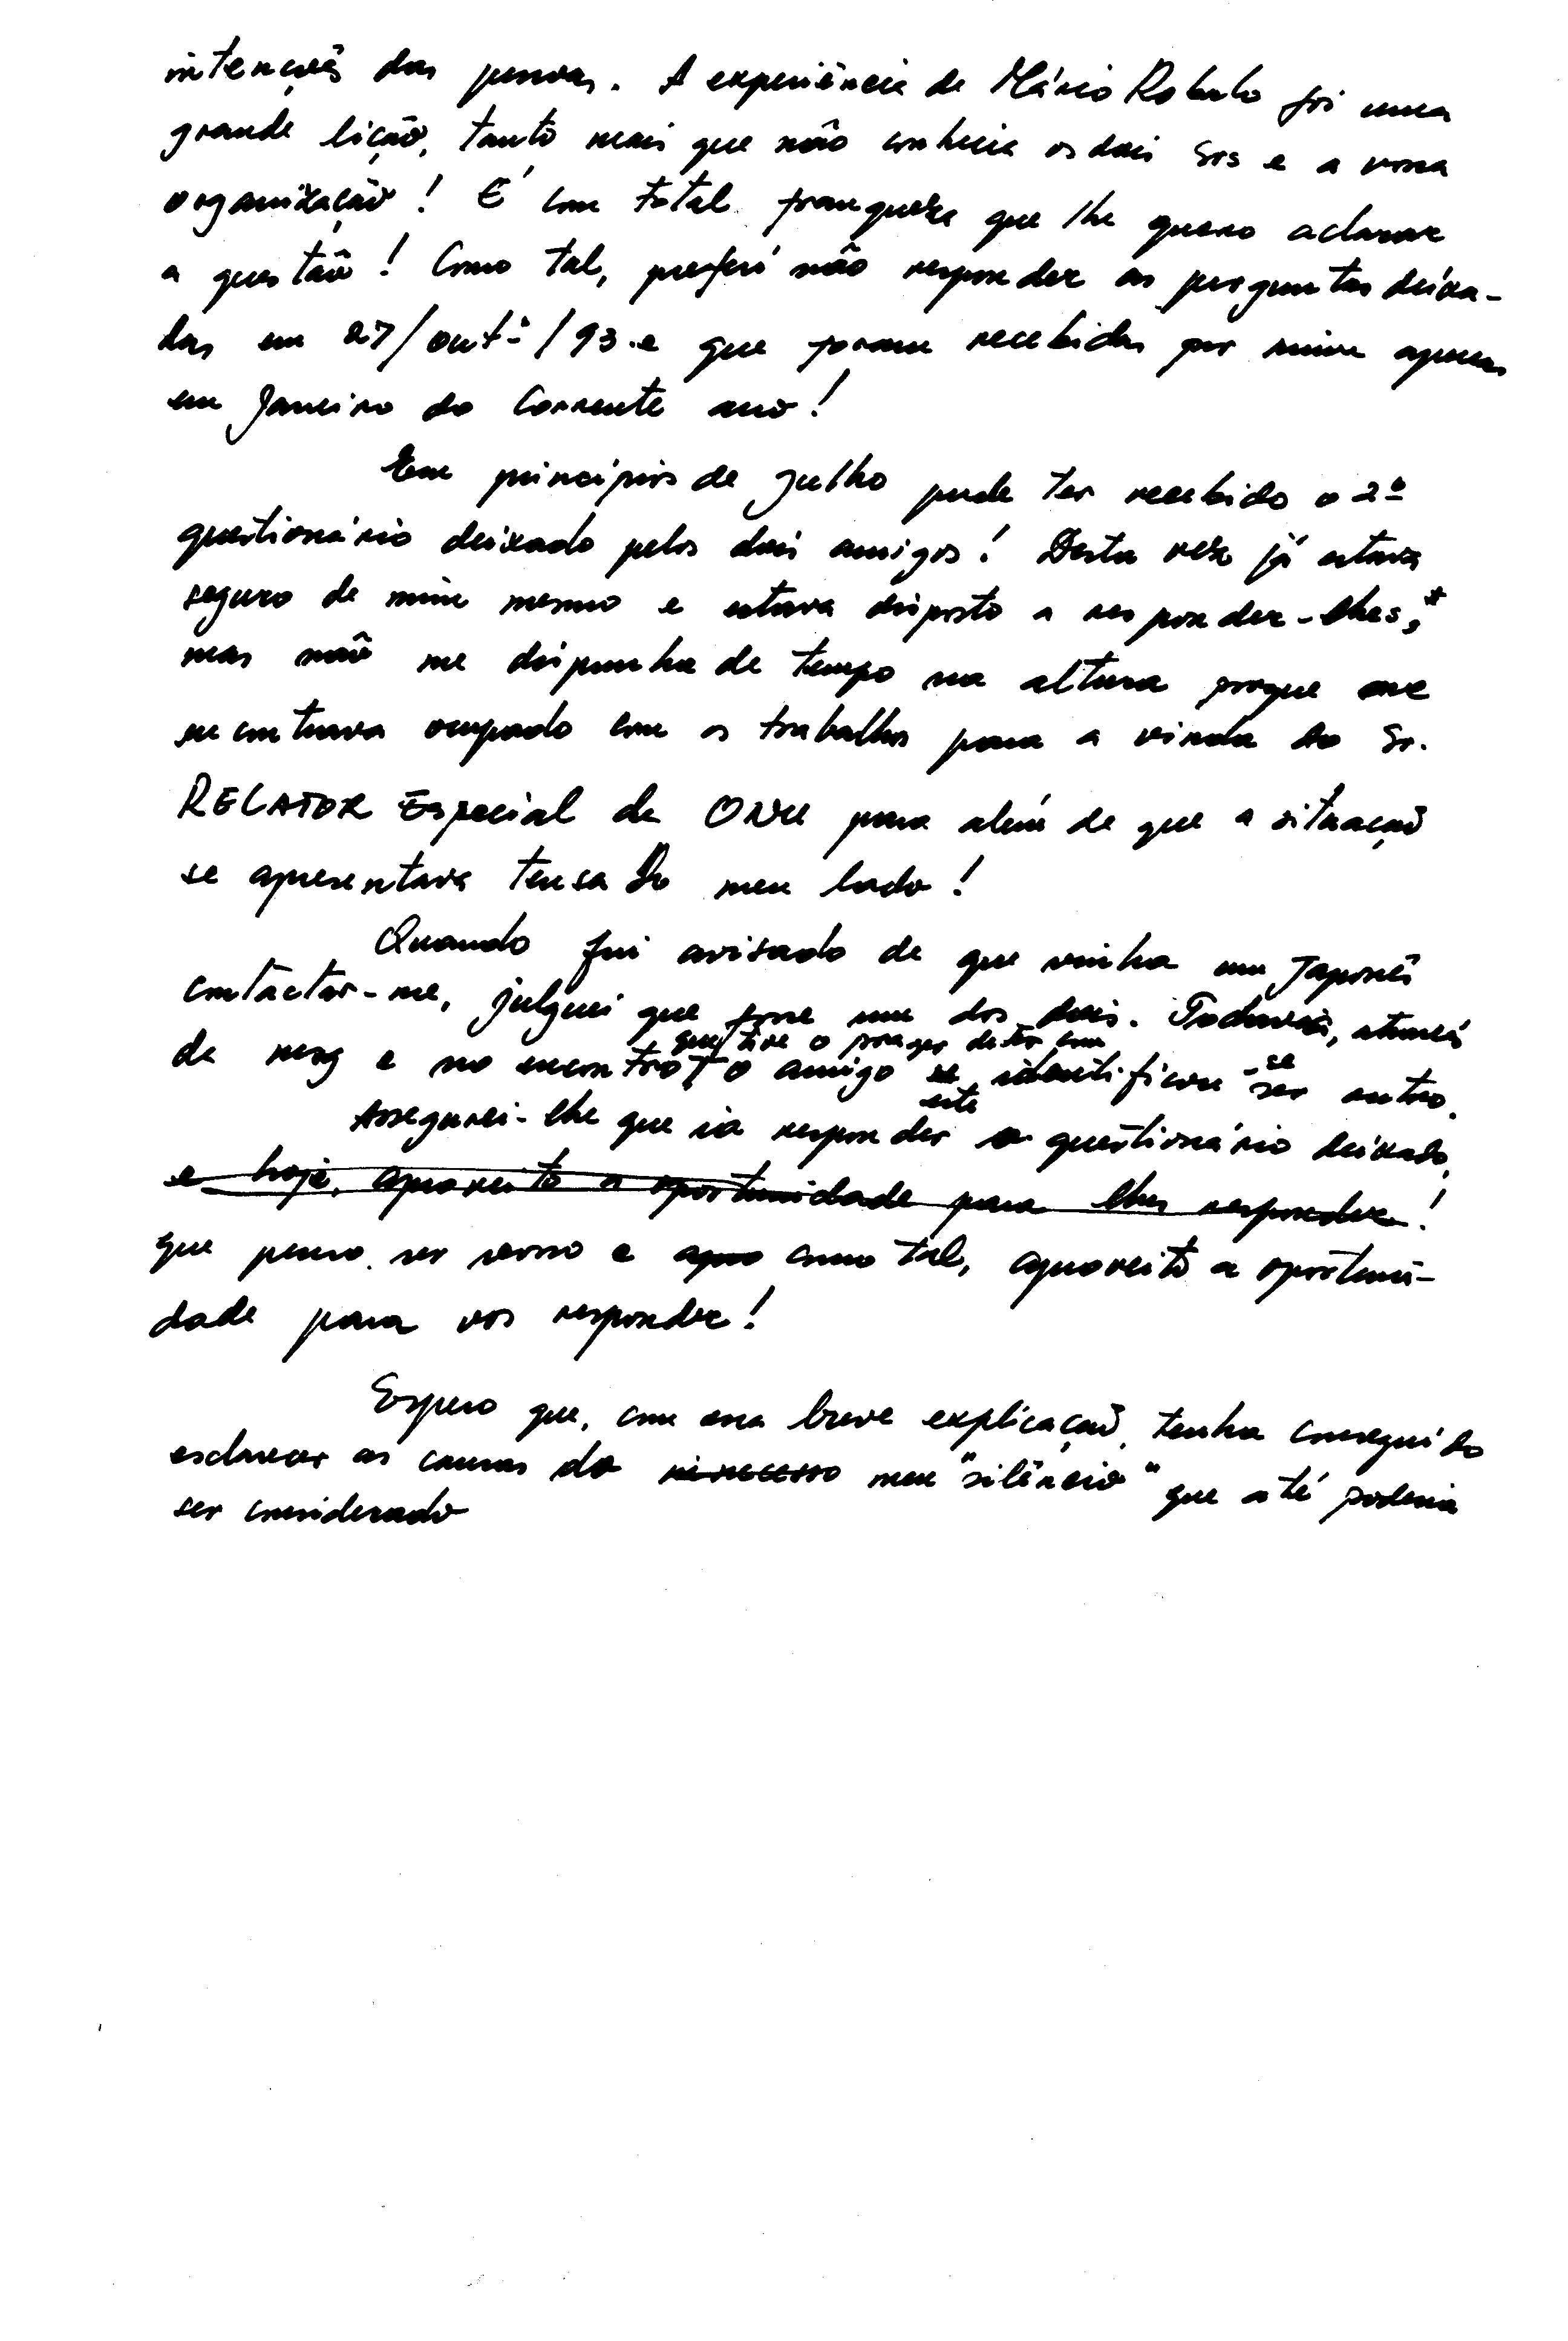 intenções das pessoas. A experiência de Mário Robalo foi uma
grande lição, tanto mais que não conhecia os dois Srs e a vossa
organização! É com total franqueza que lhe quero aclarar
a questão! Como tal, preferi não responder as perguntas deixa-
das em 27/outº/93 e que foram recebidas por mim apenas
em Janeiro do corrente ano!
Em princípios de Julho pude ter recebido o 2º
questionário deixado pelos dois amigos! Desta vez já estava
seguro de mim mesmo e estava disposto a responder-lhes,*
mas não me dispunha de tempo na altura porque me
encontrava ocupado com os trabalhos para a vinda do Sr.
RELATOR Especial da ONU para além de que a situação
se apresentava tensa do meu lado!
Quando fui avisado de que vinha um Japonês
contactar-me, julguei que fosse um dos dois. Todavia, através
que tive o prazer de ter com
da msg e no encontro o amigo se identificou-se ser outro.
Assegurei-lhe que ia responder este questionário deixado,
e hoje, aproveito a oportunidade para lhes responder!
que penso ser vosso e apro como tal, aproveito a oportuni-
dade para vos responder!
Espero que, com essa breve explicação, tenha conseguido
esclarecer as causas do meu "silêncio" que até poderia
ser considerado